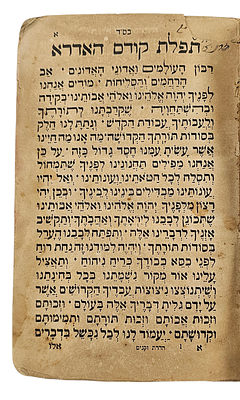 בס״ד א
תפלת קודם האדרא
רבון העולמים ואדוני האדונים · אב
הרחמים והסליחות · מודים אנחנו
לפניך יהוה אלהינו ואלהי אבותינו בקידה
ובהשתחויה · שקרבתנו לתורתך
ולעבודתך עבודת הקדש · ונתת לנו חלק
בסודות תורתך הקדושה · מה אנו מה חיינו
אשר עשית עמנו חסד גדול כזה · על כן
אנחנו מפילים תחנונינו לפניך שתמחול
ותסלח לכל חטאתינו ועונותינו · ואל יהיו
עונותינו מבדילים בינינו לבינך · ובכן יהי
רצון מלפניך יהוה אלהינו ואלהי אבותינו
שתכונן לבבנו ליראתך ואהבתך ותקשיב
אזניך לדברינו אלה · ותפתח לבבנו הערל
בסודות תורתך · ויהיה למודנו זה נחת רוח
לפני כסא כבודך כריח ניחוח · ותאציל
עלינו אור מקור נשמתנו בכל בחינתנו
ושיתנוצצו ניצוצות עבדיך הקדושים אשר
על ידם גלית דבריך אלה בעולם · וזכותם
וזכות אבותם וזכות תורתם ותמימותם
וקדושתם · יעמוד לנו לבל נכשל בדברים
א 1 הדרת זקנים אלו